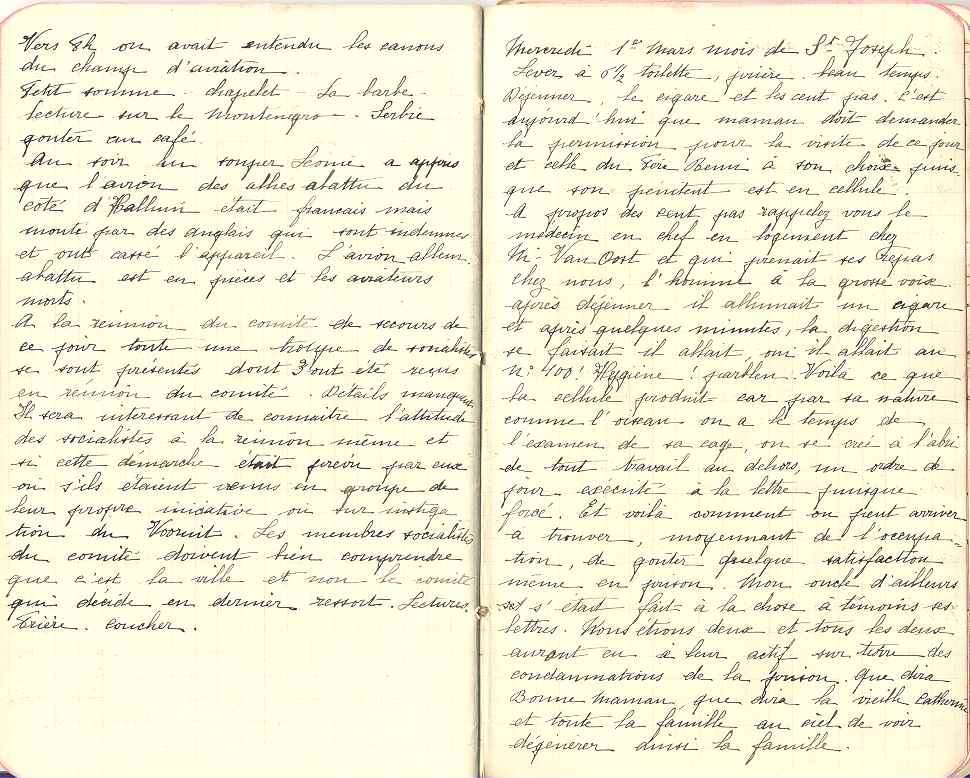 Vers 8h on avait entendu les canons
du champ d'aviation.
Petit somme - chapelet - La barbe -
lecture sur le Montenegro - Serbie
goûter au café.
Au soir un souper Leonie a appris
que l'avion des alliés abattu du
coté d'Halluin était francais mais
monté par des anglais qui sont indemnes
et ont cassé l'appareil. L'avion allem.
abattu est en pièces et les aviateurs
morts.
A la réunion du comité de secours de
ce jour toute une troupe de socialistes
se sont présentés dont 3 ont été reçus
en réunion du comité. Détails manquent.
Il sera intéressant de connaître l'attitude
des socialistes à la réunion même et
si cette démarche était prévue par eux
ou s'ils étaient venus en groupe de
leur propre iniciative ou sur instiga
tion du Vooruit. Les membres socialistes
du comité doivent bien comprendre
que c'est la ville et non le comité
qui décide en dernier ressort. Lectures.
Prière. Coucher.
Mercredi 1er Mars mois de St Joseph.
Lever à 6½ toilette, prière. beau temps.
Déjeuner, le cigare et les cent pas. C'est
aujourd'hui que maman doit demander
la permission pour la visite de ce jour
et celle du Père Remi à son choix puis
que son penitent est en cellule.
A propos des cent pas rappelez vous le
médecin en chef en logement chez
Mr Van Oost et qui prenait ses repas
chez nous, l'homme à la grosse voix
après déjeuner il allumait un cigare
et après quelques minutes, la digestion
se faisait il allait, oui il allait au
n° 100! Hygiène! parbleu. Voilà ce que
la cellule produit car par sa nature
comme l'oiseau on a le temps de
l'examen de sa cage, on se crée à l'abri
de tout travail au dehors, un ordre de
jour exécuté à la lettre puisque
forcé. Et voilà comment on peut arriver
à trouver, moyennant de l'occupa=
tion, de goûter quelque satisfaction
même en prison. Mon oncle d'ailleurs
s'était fait à la chose à témoins ses
lettres. Nous étions deux et tous les deux
auront eu à leur actif sur terre des
condamnations de la prison. Que dira
Bonne Maman, que dira la vieille Catherine
et toute la famille au ciel de voir
dégénérer ainsi la famille.